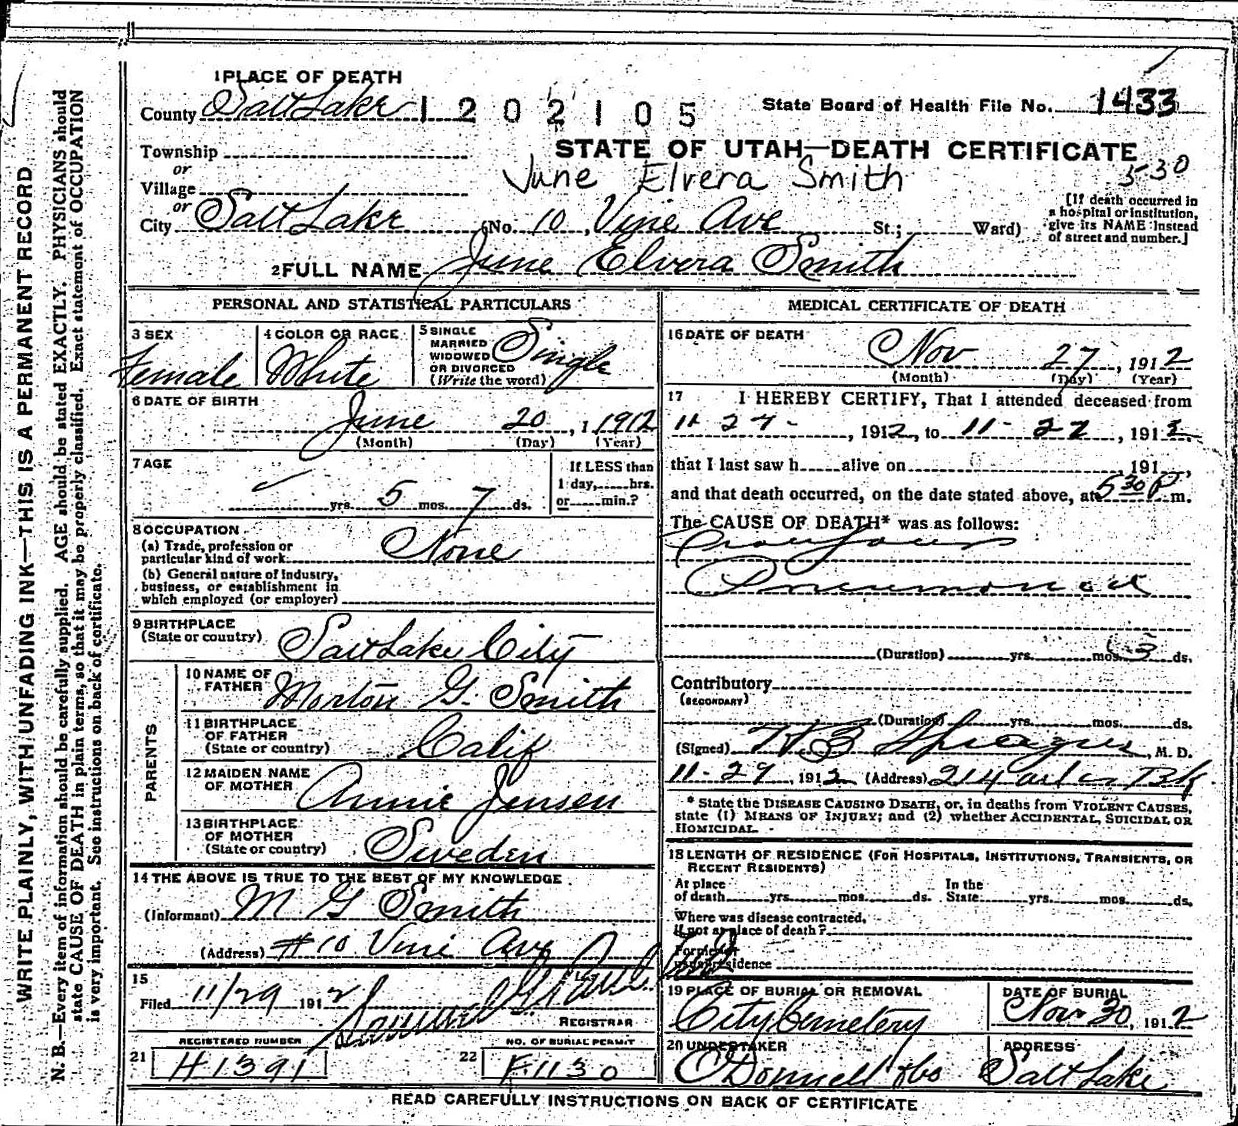 1 PLACE OF DEATH
County Salt Lake 1 2 0 2 1 0 5 State Board of Health File No. 1433
Township
STATE OF UTAH—DEATH CERTIFICATE
or
Village
June Elvera Smith 530
or
City Salt Lake (No. 10, Vine Ave St.; Ward)
[If death occurred in
a hospital or institution,
give its NAME instead
of street and number.]
2 FULL NAME June Elvera Smith
PERSONAL AND STATISTICAL PARTICULARS
3 SEX
Female
4 COLOR OR RACE
White
5 SINGLE
MARRIED
WIDOWED
OR DIVORCED
(Write the word)
Single
6 DATE OF BIRTH
June 20, 1 1912
(Month) (Day) (Year)
7 AGE
yrs. 5 mos. 7 ds.
If LESS than
1 day, hrs.
or min.?
8 OCCUPATION
(a) Trade, profession or
particular kind of work None
(b) General nature of industry,
business, or establishment in
which employed (or employer)
9 BIRTHPLACE
(State or country) Salt Lake City
PARENTS
10 NAME OF
FATHER Morton G. Smith
11 BIRTHPLACE
OF FATHER
(State or country) Calif
12 MAIDEN NAME
OF MOTHER Annie Jensen
13 BIRTHPLACE
OF MOTHER
(State or country) Sweden
14 THE ABOVE IS TRUE TO THE BEST OF MY KNOWLEDGE
(Informant) M G Smith
(Address) #10 Vine Ave
15
Filed 11/29 1912 Samuel G. Paul
REGISTRAR
REGISTERED NUMBER
21 H1391
NO. OF BURIAL PERMIT
22 F1130
MEDICAL CERTIFICATE OF DEATH
16 DATE OF DEATH
Nov 27, 1912
(Month) (Day) (Year)
17 I HEREBY CERTIFY, That I attended deceased from
11-27-, 1912, to 11-27, 1912
that I last saw h alive on 191,
and that death occurred, on the date stated above, at 530 P.m.
The CAUSE OF DEATH* was as follows:
Croupous
Pneumonia
(Duration) yrs. mos. 3 ds.
Contributory
(SECONDARY)
(Duration) yrs. mos. ds.
(Signed) H B Sprague, M. D.
11-29, 1912 (Address) 214 Atlas Bk.
* State the DISEASE CAUSING DEATH, or, in deaths from VIOLENT CAUSES,
state (1) MEANS OF INJURY; and (2) whether ACCIDENTAL, SUICIDAL OR
HOMICIDAL.
18 LENGTH OF RESIDENCE (FOR HOSPITALS, INSTITUTIONS, TRANSIENTS, OR
RECENT RESIDENTS)
At place
of death yrs. mos. ds.
In the
State yrs. mos. ds.
Where was disease contracted,
if not at place of death?
Former or
usual residence
19 PLACE OF BURIAL OR REMOVAL
City Cemetery
DATE OF BURIAL
Nov 30, 1912
20 UNDERTAKER
O'Donnell & Co
ADDRESS
Salt Lake
READ CAREFULLY INSTRUCTIONS ON BACK OF CERTIFICATE
WRITE PLAINLY, WITH UNFADING INK—THIS IS A PERMANENT RECORD
N. B.—Every item of information should be carefully supplied. AGE should be stated EXACTLY. PHYSICIANS should
state CAUSE OF DEATH in plain terms, so that it may be properly classified. Exact statement of OCCUPATION
is very important. See instructions on back of certificate.